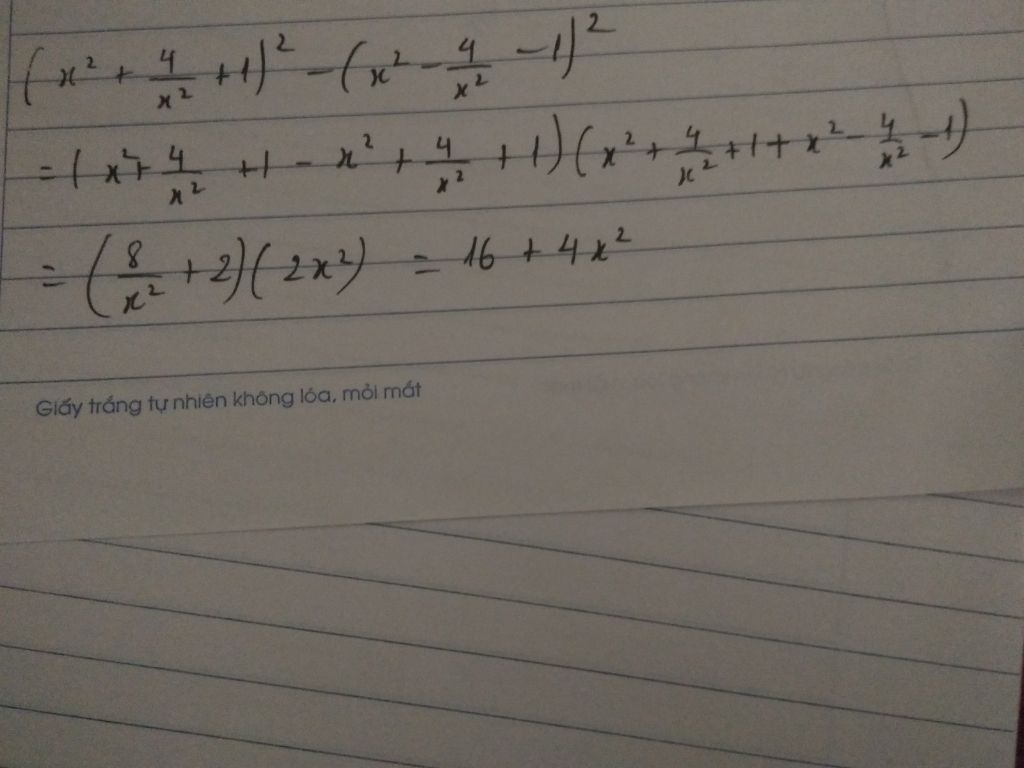 (x² + 4/x² + 1)² - (x² - 4/x² - 1)²
= (x² + 4/x² + 1 - x² + 4/x² + 1)(x² + 4/x² + 1 + x² - 4/x² - 1)
= (8/x² + 2)(2x²) = 16 + 4x²
Giấy trắng tự nhiên không lóa, mỏi mắt